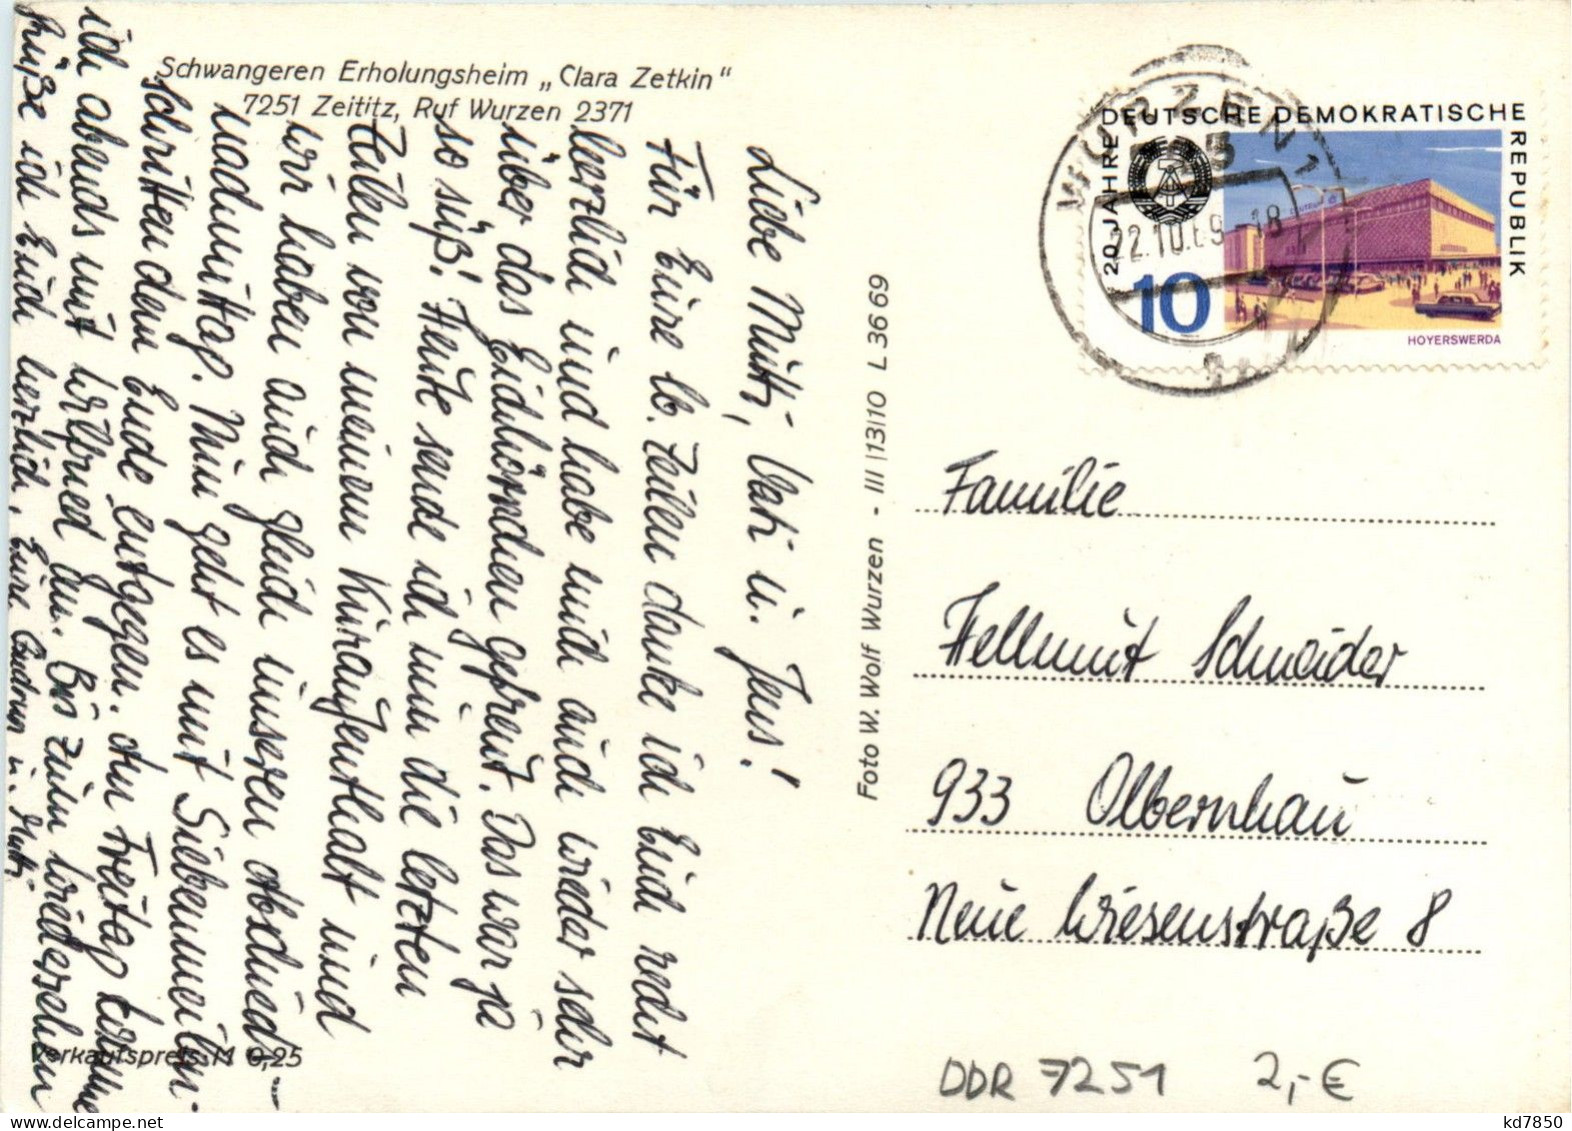 Schwangeren Erholungsheim „Clara Zetkin"
7251 Zeititz, Ruf Wurzen 2371
Liebe Mutti, Vati u. Jens!
Für Eure lb. Zeilen danke ich Euch recht
herzlich und habe mich auch wieder sehr
über das Eichhörnchen gefreut. Das war ja
so süß! Heute sende ich nun die letzten
Zeilen von meinem Kuraufenthalt und
wir haben auch gleich unseren Abschieds-
nachmittag. Nun geht es mit Siebenmeilen-
schritten dem Ende entgegen. Am Freitag komme
ich abends mit Wilfried an. Bis zum Wiedersehen
grüße ich Euch herzlich, Eure Gudrun u. Mutti
Verkaufspreis: M 0,25
Foto W. Wolf Wurzen - III/13/10 L 36 69
WURZEN 1
22.10.69-18
DEUTSCHE DEMOKRATISCHE
REPUBLIK
20 JAHRE
10
HOYERSWERDA
Familie
Hellmut Schneider
933 Olbernhau
Neue Wiesenstraße 8
DDR 7251 2,-€
kd7850